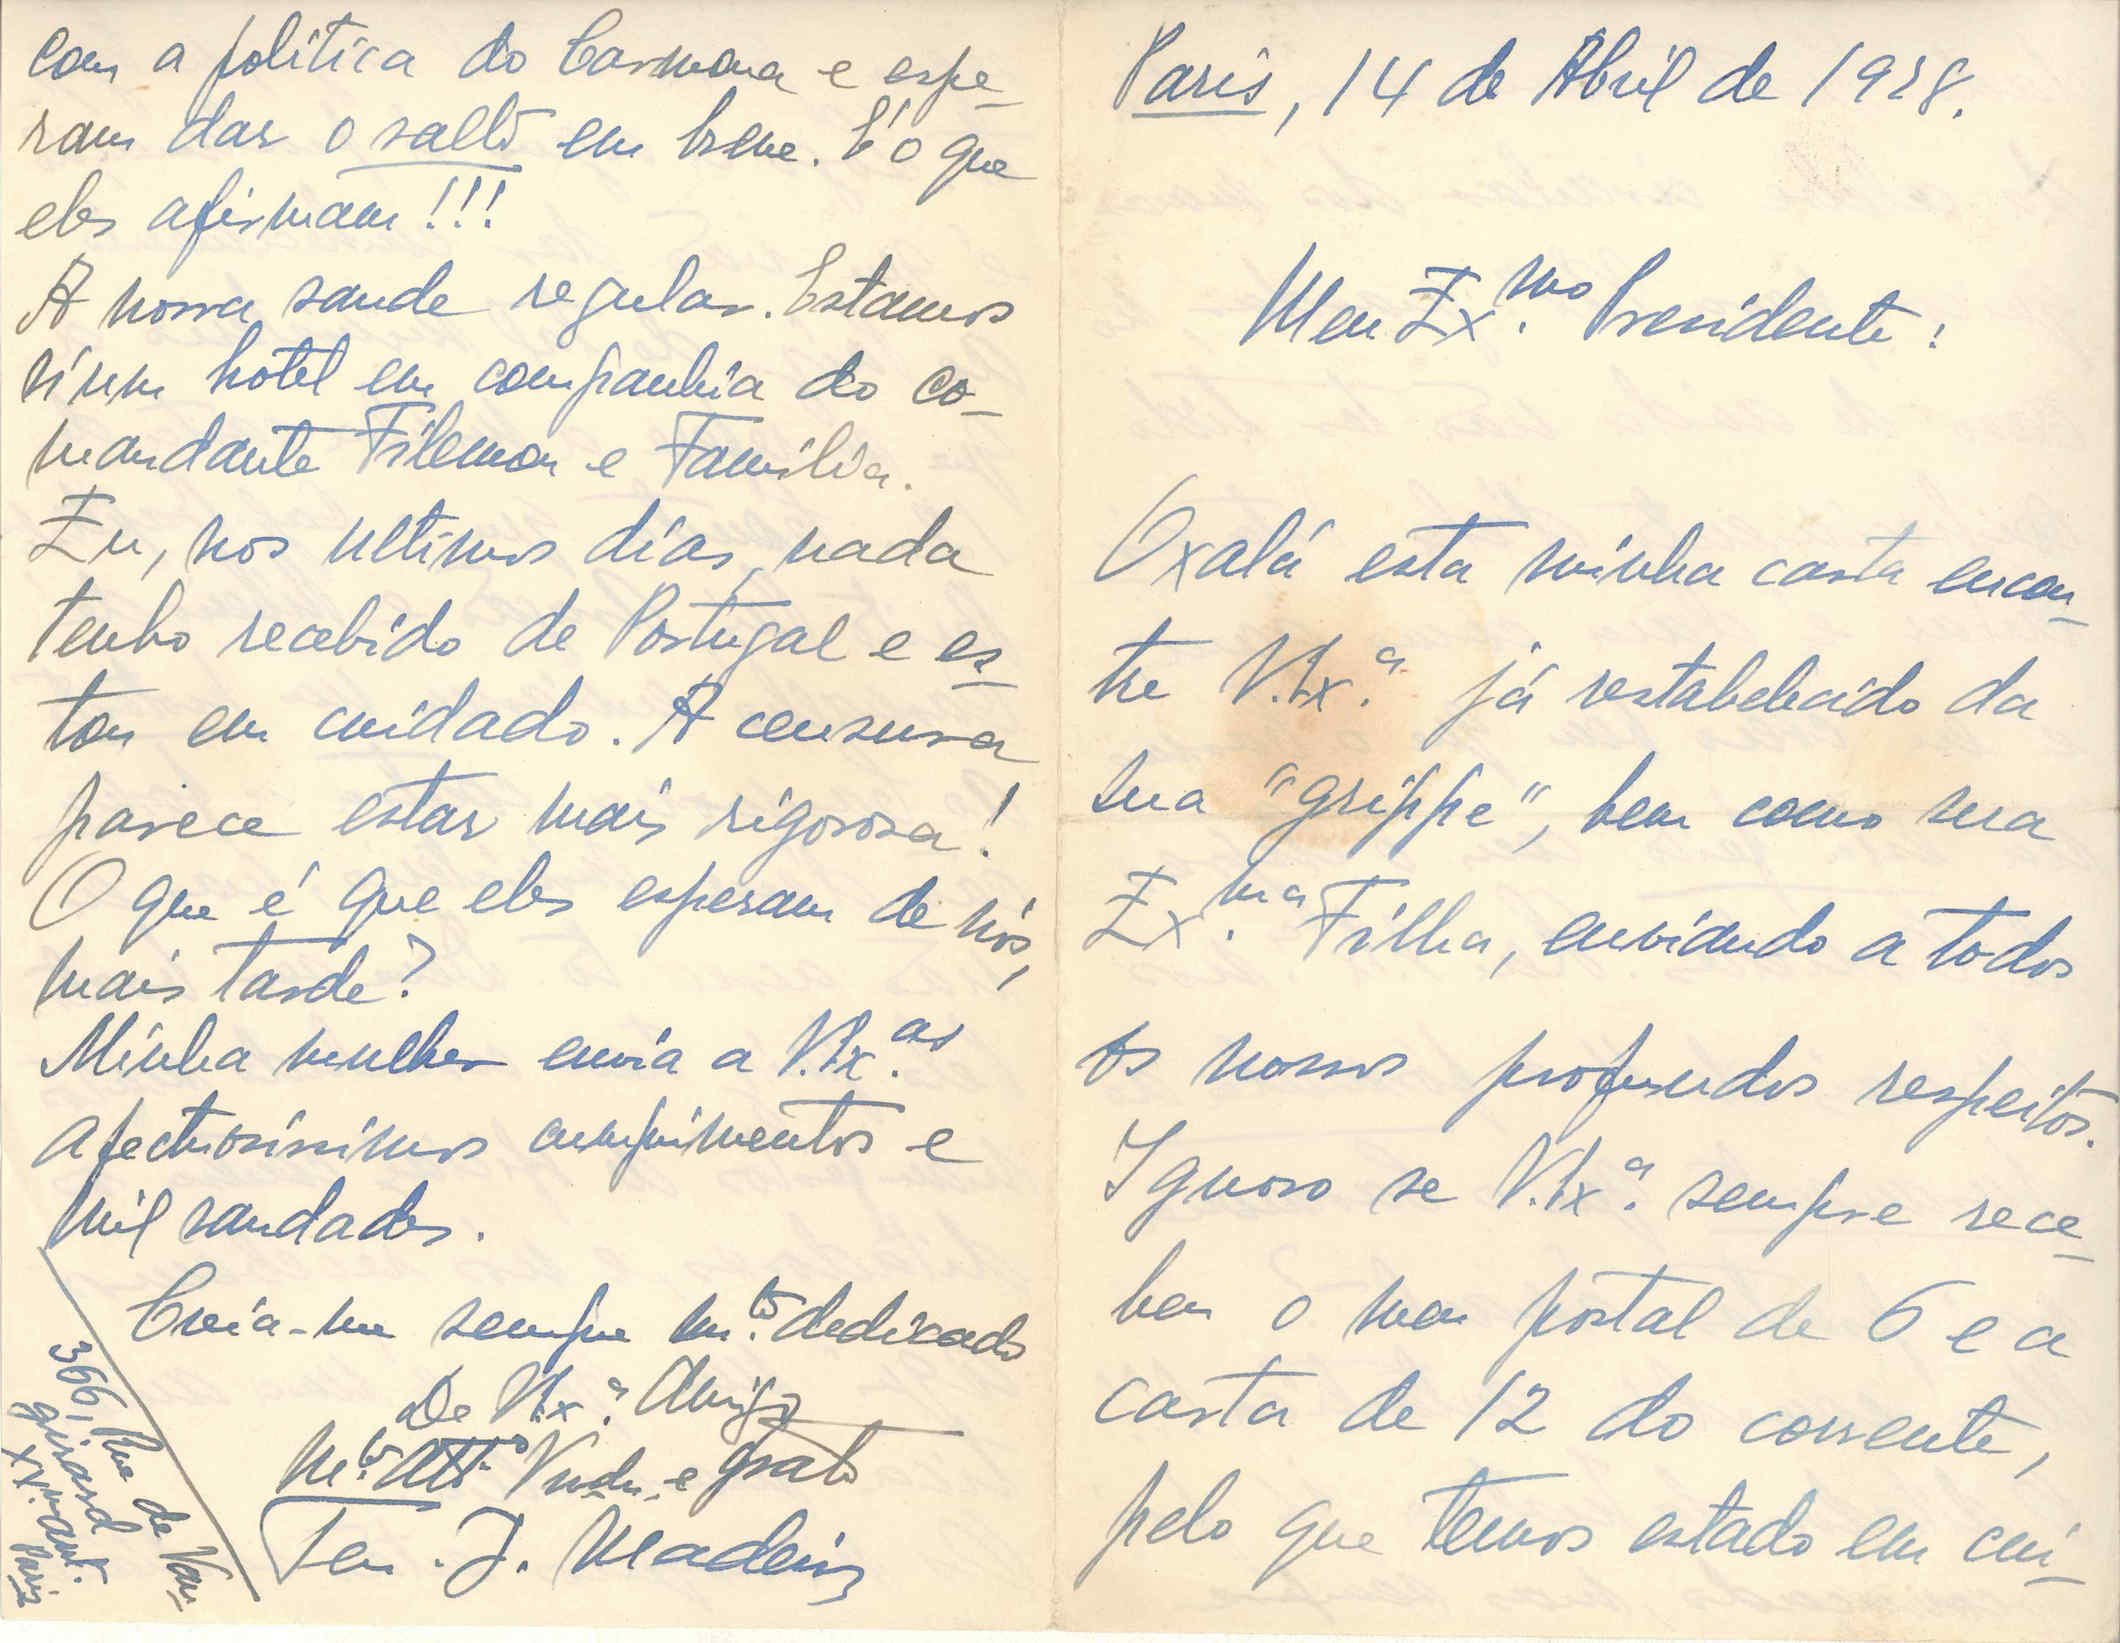 Paris, 14 de Abril de 1928.
Meu Ex.mo Presidente:
Oxalá esta minha carta encon-
tre V.Ex.a já restabelecido da
sua "grippe", bem como sua
Ex.ma Filha, enviando a todos
os nossos profundos respeitos.
Ignoro se V.Ex.a sempre rece-
beu o meu postal de 6 e a
carta de 12 do corrente,
pelo que temos estado em cui-
com a politica do Carmona e espe-
ram dar o salto em breve. É o que
eles afirmam!!!
A nossa saude regular. Estamos
n'um hotel em companhia do co-
mandante Filemon e Familia.
Eu, nos ultimos dias, nada
tenho recebido de Portugal e es-
tou em cuidado. A censura
parece estar mais rigorosa!
O que é que eles esperam de nós,
mais tarde?
Minha mulher envia a V.Ex.as
afectuosissimos cumprimentos e
mil saudades.
Creia-me sempre m.to dedicado
De V.Ex.a Amigo
M.to Att.o Vndr. e Grato
Ten. J. Madeira
366, Rue de Vau-
girard
XV.e arrt.
Paris